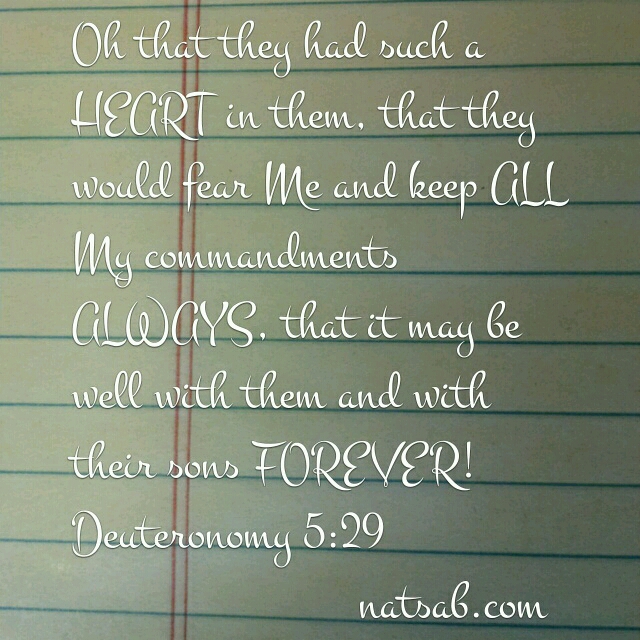 Oh that they had such a
HEART in them, that they
would fear Me and keep ALL
My commandments
ALWAYS, that it may be
well with them and with
their sons FOREVER!
Deuteronomy 5:29
natsab.com